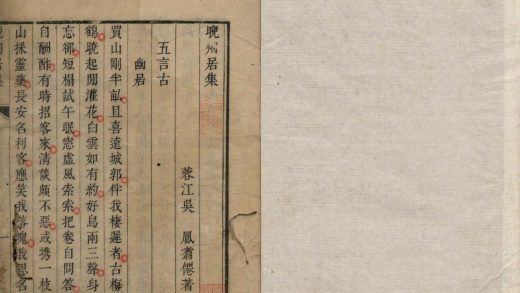 晚居集
蓉江吳　鳳翥僊著
五言古
幽居
買山剛半畝且喜遠城郭伴我棲遲者古梅
鶴曉起閒灌花白雲如有約好鳥兩三聲身
忘郤短榻試午眠窓虛風索索把卷自問答
自酬酢有時招客來清談頗不惡或携一枝
山採靈藥長安名利客應笑我落魄我思名
居集